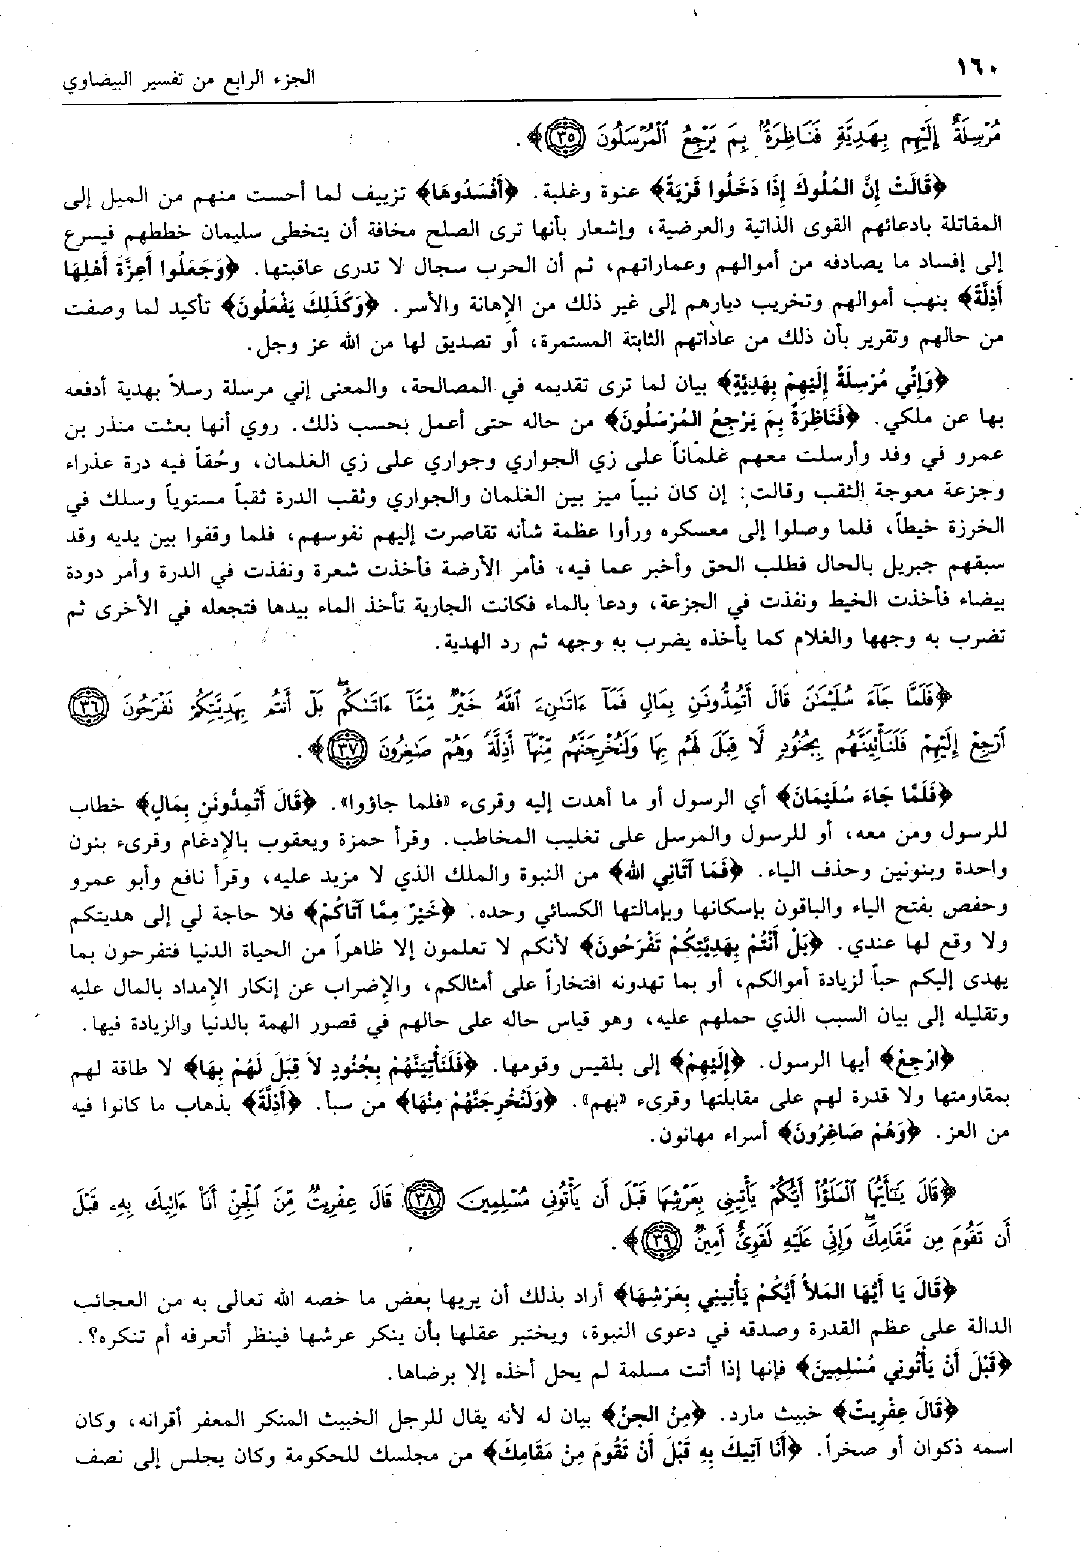 ١٦٠
الجزء الرابع من تفسير البيضاوي
مُرْسِلَةٌ إِلَيْهِم بِهَدِيَّةٍ فَنَاظِرَةٌۢ بِمَ يَرْجِعُ ٱلْمُرْسَلُونَ ﴿٣٥﴾﴾.
﴿قَالَتْ إِنَّ المُلُوكَ إِذَا دَخَلُوا قَرْيَةً﴾ عنوة وغلبة. ﴿أَفْسَدُوهَا﴾ تزييف لما أحست منهم من الميل إلى
المقاتلة بادعائهم القوى الذاتية والعرضية، وإشعار بأنها ترى الصلح مخافة أن يتخطى سليمان خططهم فيسرع
إلى إفساد ما يصادفه من أموالهم وعماراتهم، ثم أن الحرب سجال لا تدرى عاقبتها. ﴿وَجَعَلُوا أَعِزَّةَ أَهْلِهَا
أَذِلَّةً﴾ بنهب أموالهم وتخريب ديارهم إلى غير ذلك من الإهانة والأسر. ﴿وَكَذَلِكَ يَفْعَلُونَ﴾ تأكيد لما وصفت
من حالهم وتقرير بأن ذلك من عاداتهم الثابتة المستمرة، أو تصديق لها من الله عز وجل.
﴿وَإِنِّي مُرْسِلَةٌ إِلَيْهِمْ بِهَدِيَّةٍ﴾ بيان لما ترى تقديمه في المصالحة، والمعنى إني مرسلة رسلاً بهدية أدفعه
بها عن ملكي. ﴿فَنَاظِرَةٌ بِمَ يَرْجِعُ المُرْسَلُونَ﴾ من حاله حتى أعمل بحسب ذلك. روي أنها بعثت منذر بن
عمرو في وفد وأرسلت معهم غلماناً على زي الجواري وجواري على زي الغلمان، وحُقاً فيه درة عذراء
وجزعة معوجة الثقب وقالت: إن كان نبياً ميز بين الغلمان والجواري وثقب الدرة ثقباً مستوياً وسلك في
الخرزة خيطاً، فلما وصلوا إلى معسكره ورأوا عظمة شأنه تقاصرت إليهم نفوسهم، فلما وقفوا بين يديه وقد
سبقهم جبريل بالحال فطلب الحق وأخبر عما فيه، فأمر الأرضة فأخذت شعرة ونفذت في الدرة وأمر دودة
بيضاء فأخذت الخيط ونفذت في الجزعة، ودعا بالماء فكانت الجارية تأخذ الماء بيدها فتجعله في الأخرى ثم
تضرب به وجهها والغلام كما يأخذه يضرب به وجهه ثم رد الهدية.
﴿فَلَمَّا جَآءَ سُلَيْمَٰنَ قَالَ أَتُمِدُّونَنِ بِمَالٍ فَمَآ ءَاتَىٰنِۦَ ٱللَّهُ خَيْرٌ مِّمَّآ ءَاتَىٰكُم بَلْ أَنتُم بِهَدِيَّتِكُمْ نَفْرَحُونَ ﴿٣٦﴾
ٱرْجِعْ إِلَيْهِمْ فَلَنَأْتِيَنَّهُم بِجُنُودٍ لَّا قِبَلَ لَهُم بِهَا وَلَنُخْرِجَنَّهُم مِّنْهَآ أَذِلَّةً وَهُمْ صَٰغِرُونَ ﴿٣٧﴾﴾.
﴿فَلَمَّا جَاءَ سُلَيْمَانَ﴾ أي الرسول أو ما أهدت إليه وقرىء «فلما جاؤوا». ﴿قَالَ أَتُمِدُّونَنِ بِمَالٍ﴾ خطاب
للرسول ومن معه، أو للرسول والمرسل على تغليب المخاطب. وقرأ حمزة ويعقوب بالإدغام وقرىء بنون
واحدة وبنونين وحذف الياء. ﴿فَمَا آتَانِي الله﴾ من النبوة والملك الذي لا مزيد عليه، وقرأ نافع وأبو عمرو
وحفص بفتح الياء والباقون بإسكانها وبإمالتها الكسائي وحده. ﴿خَيْرٌ مِمَّا آتَاكُمْ﴾ فلا حاجة لي إلى هديتكم
ولا وقع لها عندي. ﴿بَلْ أَنْتُمْ بِهَدِيَّتِكُمْ تَفْرَحُونَ﴾ لأنكم لا تعلمون إلا ظاهراً من الحياة الدنيا فتفرحون بما
يهدى إليكم حباً لزيادة أموالكم، أو بما تهدونه افتخاراً على أمثالكم، والإضراب عن إنكار الإمداد بالمال عليه
وتقليله إلى بيان السبب الذي حملهم عليه، وهو قياس حاله على حالهم في قصور الهمة بالدنيا والزيادة فيها.
﴿ارْجِعْ﴾ أيها الرسول. ﴿إِلَيْهِمْ﴾ إلى بلقيس وقومها. ﴿فَلَنَأْتِيَنَّهُمْ بِجُنُودٍ لاَ قِبَلَ لَهُمْ بِهَا﴾ لا طاقة لهم
بمقاومتها ولا قدرة لهم على مقابلتها وقرىء «بهم». ﴿وَلَنُخْرِجَنَّهُمْ مِنْهَا﴾ من سبأ. ﴿أَذِلَّةً﴾ بذهاب ما كانوا فيه
من العز. ﴿وَهُمْ صَاغِرُونَ﴾ أسراء مهانون.
﴿قَالَ يَٰٓأَيُّهَا ٱلْمَلَؤُا۟ أَيُّكُمْ يَأْتِينِى بِعَرْشِهَا قَبْلَ أَن يَأْتُونِى مُسْلِمِينَ ﴿٣٨﴾ قَالَ عِفْرِيتٌ مِّنَ ٱلْجِنِّ أَنَا۠ ءَاتِيكَ بِهِۦ قَبْلَ
أَن تَقُومَ مِن مَّقَامِكَ وَإِنِّى عَلَيْهِ لَقَوِىٌّ أَمِينٌ ﴿٣٩﴾﴾.
﴿قَالَ يَا أَيُّهَا المَلأُ أَيُّكُمْ يَأْتِينِي بِعَرْشِهَا﴾ أراد بذلك أن يريها بعض ما خصه الله تعالى به من العجائب
الدالة على عظم القدرة وصدقه في دعوى النبوة، ويختبر عقلها بأن ينكر عرشها فينظر أتعرفه أم تنكره؟.
﴿قَبْلَ أَنْ يَأْتُونِي مُسْلِمِينَ﴾ فإنها إذا أتت مسلمة لم يحل أخذه إلا برضاها.
﴿قَالَ عِفْرِيتٌ﴾ خبيث مارد. ﴿مِنَ الجِنِّ﴾ بيان له لأنه يقال للرجل الخبيث المنكر المعفر أقرانه، وكان
اسمه ذكوان أو صخراً. ﴿أَنَا آتِيكَ بِهِ قَبْلَ أَنْ تَقُومَ مِنْ مَقَامِكَ﴾ من مجلسك للحكومة وكان يجلس إلى نصف